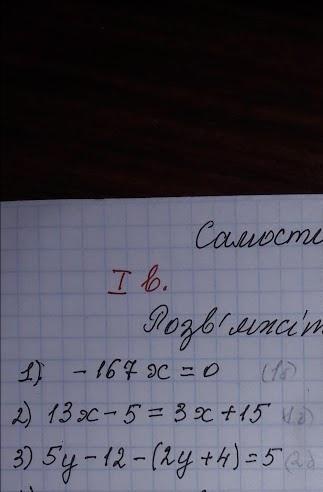 Самости
I в.
Розв'яжіт
1) -167x = 0 (1б)
2) 13x - 5 = 3x + 15 (1б)
3) 5y - 12 - (2y + 4) = 5 (2б)